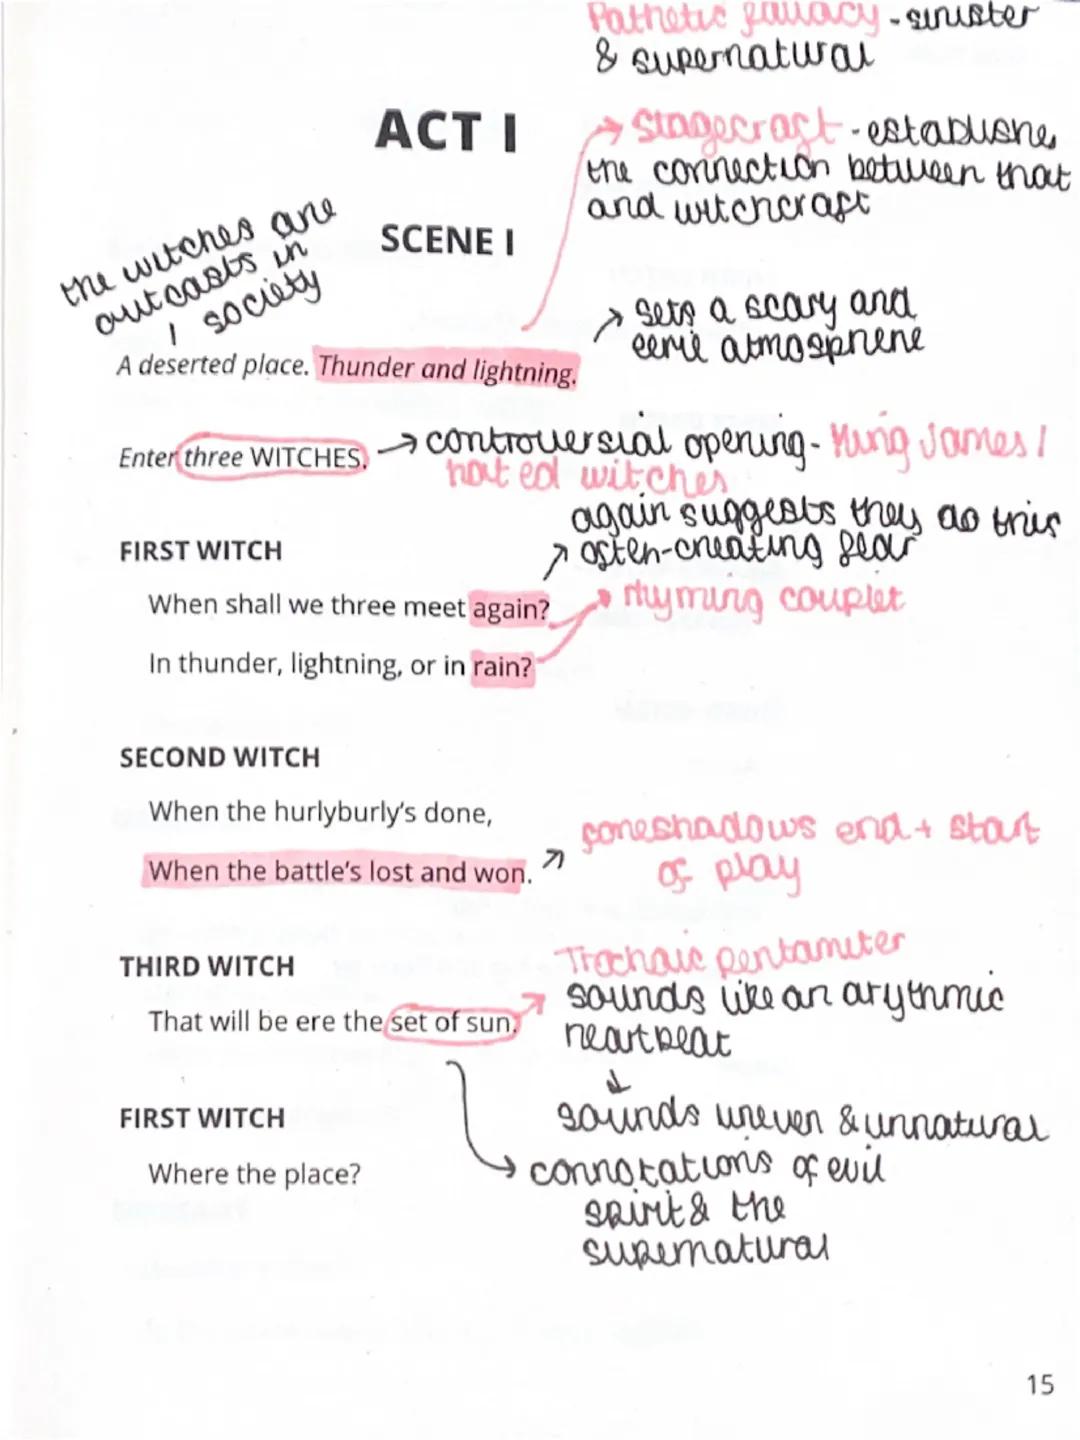 Pathetic fallacy - sinister
& supernatural
ACT I
→ Stagecraft - establishes
the connection between that
and witchcraft
SCENE I
the witches are
outcasts in
society
→ sets a scary and
eerie atmosphere
A deserted place. Thunder and lightning.
Enter three WITCHES. → controversial opening - King James I
hated witches
again suggests they do this
FIRST WITCH
↗ often-creating fear
When shall we three meet again?
rhyming couplet
In thunder, lightning, or in rain?
SECOND WITCH
When the hurlyburly's done,
foreshadows end + start
of play
When the battle's lost and won.
Trochaic pentameter
THIRD WITCH
sounds like an arythmic
heartbeat
That will be ere the set of sun.
↓
sounds uneven & unnatural
FIRST WITCH
→ connotations of evil
Where the place?
spirit & the
supernatural
15